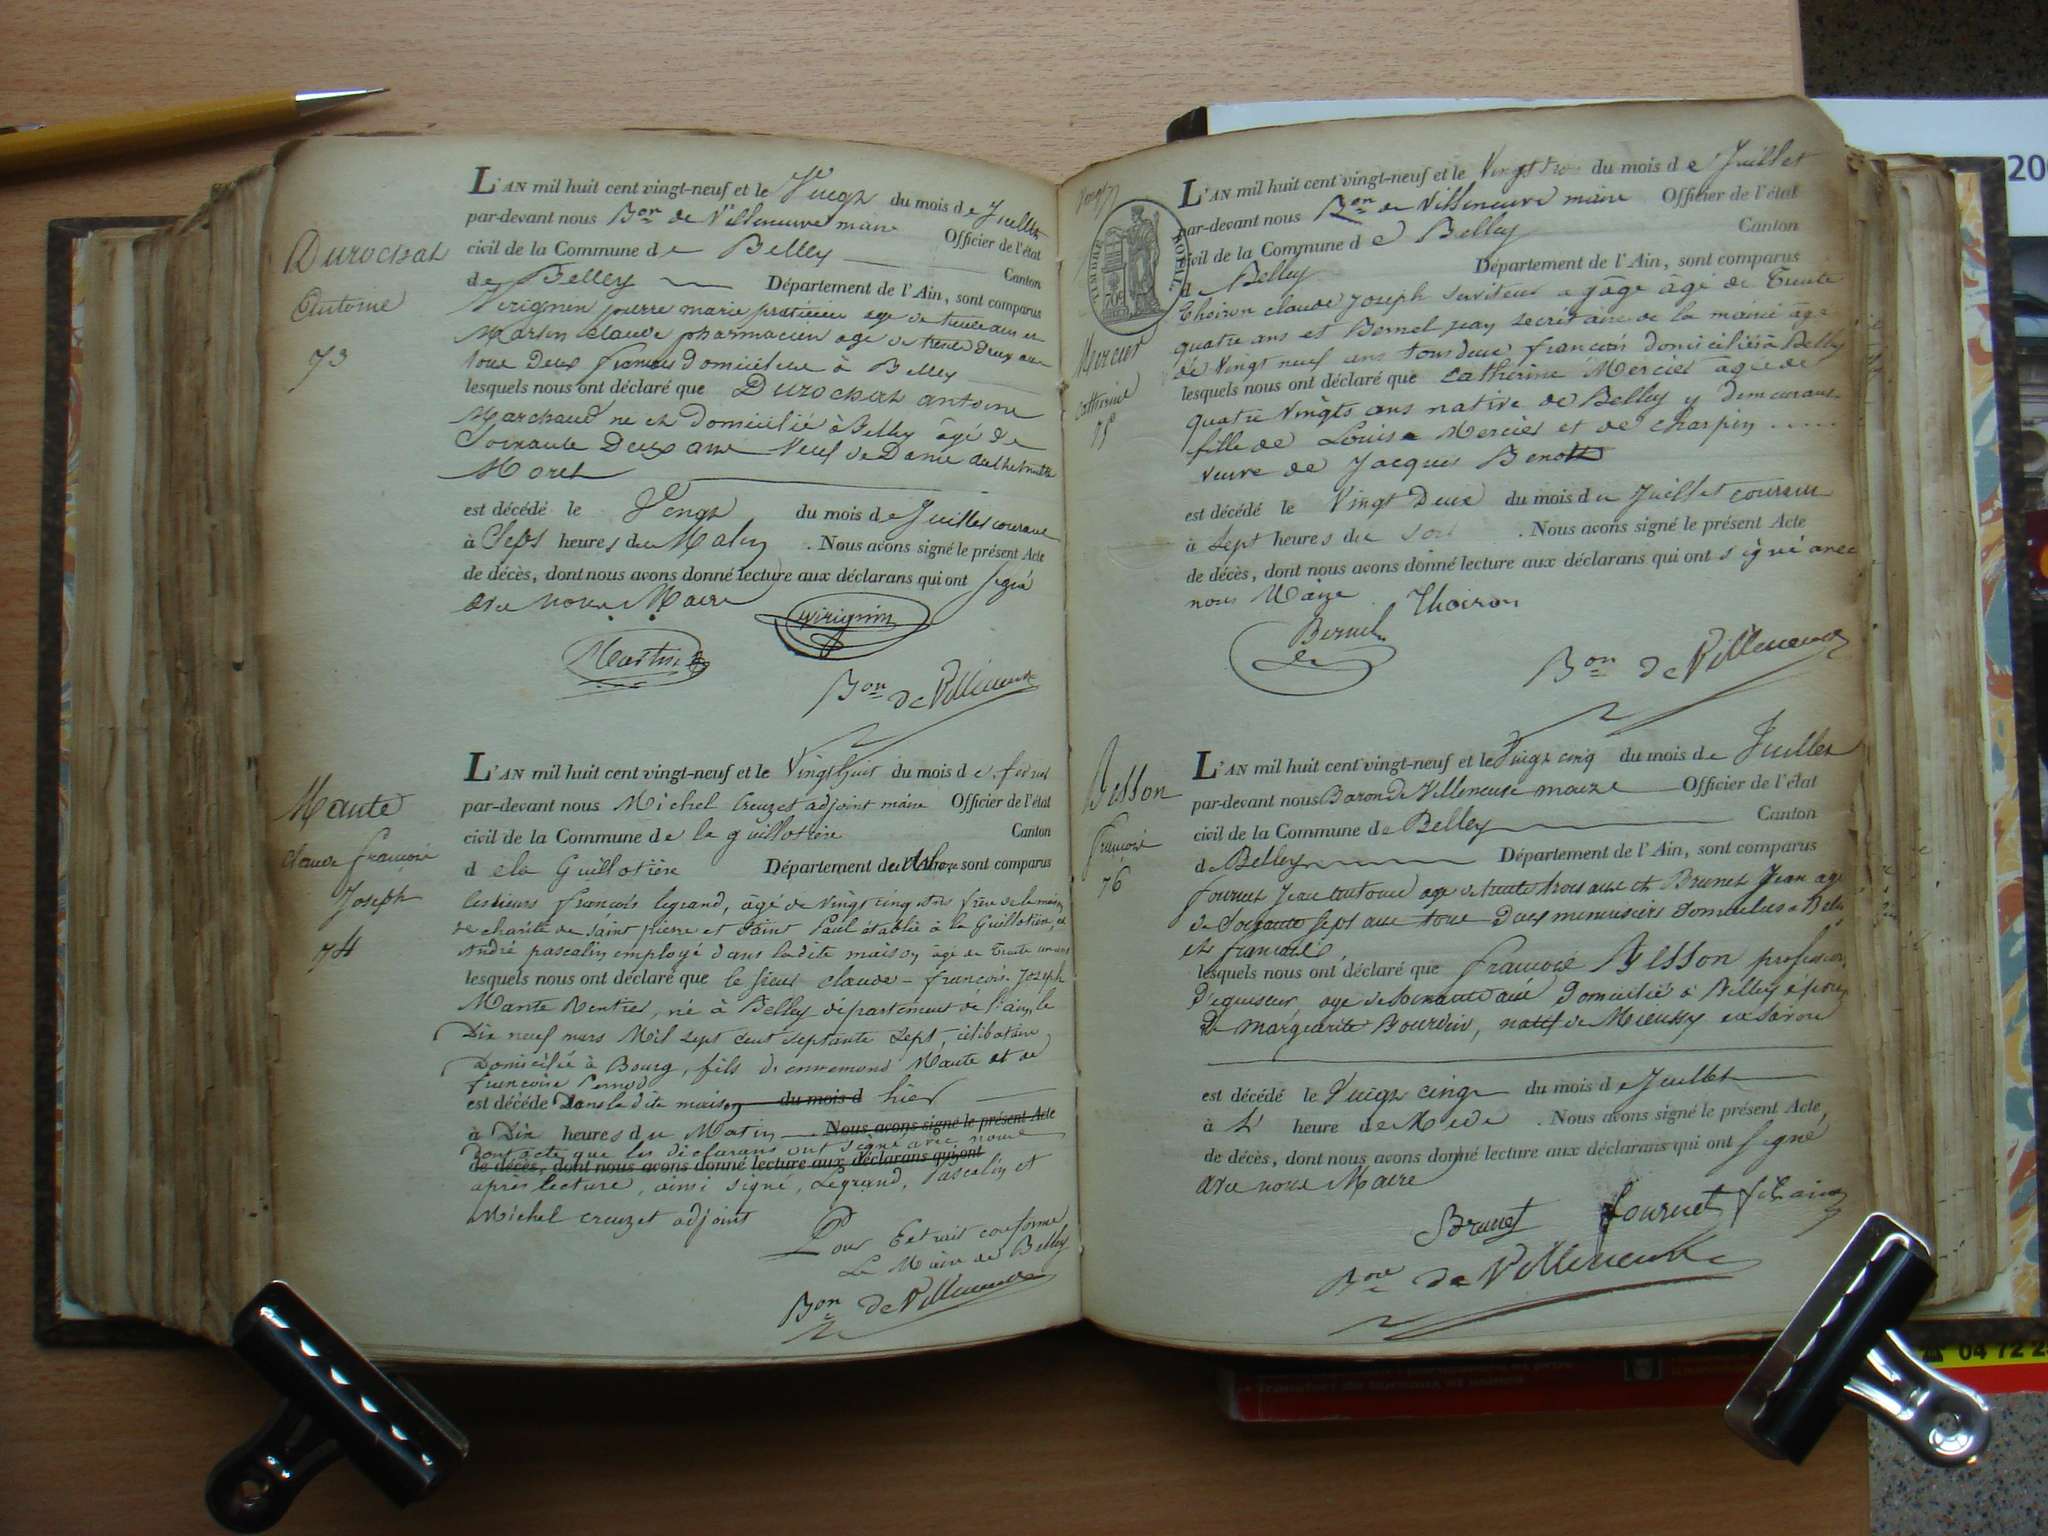 Durochat
Antoine
73
L'AN mil huit cent vingt-neuf et le Vingt du mois de Juillet
par-devant nous Bon de Villeneuve maire Officier de l'état
civil de la Commune de Belley Canton
de Belley Département de l'Ain, sont comparus
Virignin pierre marie praticien age de trente ans et
Martin claude pharmacien age de trente Deux ans
tous Deux français domiciliés à Belley
lesquels nous ont déclaré que Durochat antoine
Marchand né et Domicilié à Belley âgé de
Soixante Deux ans Veuf de Dame
Moret
est décédé le Vingt du mois de Juillet courant
à Sept heures du Matin . Nous avons signé le présent Acte
de décès, dont nous avons donné lecture aux déclarans qui ont signé
avec nous Maire
Virignin
Martin
Bon de Villeneuve
Mante
Claude françois
Joseph
74
L'AN mil huit cent vingt-neuf et le Vingt huit du mois de
par-devant nous Michel Creuzet adjoint maire Officier de l'état
civil de la Commune de la guillotière Canton
d ela Guillotière Département du Rhône sont comparus
les sieurs françois legrand, âgé de vingt cinq ans frère de la maison
de charité de saint pierre et saint Paul établie à la Guillotière, et
André pascalin employé dans ladite maison âgé de trente un ans
lesquels nous ont déclaré que le sieur claude-françois Joseph
Mante Rentier, né à Belley département de l'ain, le
Dix neuf mars Mil sept cent septante sept, célibataire
Domicilié à Bourg, fils d'ennemond Mante et de
françoise Pernod
est décédé Dans la dite maison du mois d hier
à Dix heures du Matin Nous avons signé le présent Acte
Dont acte que les déclarans ont signé avec nous
de décès, dont nous avons donné lecture aux déclarans qui ont
après lecture, ainsi signé, Legrand, Pascalin et
Michel creuzet adjoint
Pour Extrait conforme
Le Maire de Belley
Bon de Villeneuve
TIMBRE ROYAL
70c
Mercier
Catherine
75
L'AN mil huit cent vingt-neuf et le Vingt trois du mois de Juillet
par-devant nous Bon de Villeneuve maire Officier de l'état
civil de la Commune de Belley Canton
d Belley Département de l'Ain, sont comparus
Thoiron claude Joseph Serviteur a gage âgé de Trente
quatre ans et Bernel jean secrétaire de la mairie âgé
de Vingt neuf ans tous deux français domiciliés à Belley
lesquels nous ont déclaré que Catherine Mercier agée de
quatre Vingts ans native de Belley y demeurant
fille de Louis Mercier et de charpin ....
veuve de Jacques Benott
est décédé le Vingt Deux du mois du Juillet courant
à sept heures du soir . Nous avons signé le présent Acte
de décès, dont nous avons donné lecture aux déclarans qui ont signé avec
nous Maire
Thoiron
Bernel
Bon de Villeneuve
Besson
françois
76
L'AN mil huit cent vingt-neuf et le Vingt cinq du mois de Juillet
par-devant nous Baron de Villeneuve maire Officier de l'état
civil de la Commune de Belley Canton
de Belley Département de l'Ain, sont comparus
fournet Jean antoine age de trente trois ans et Brunet Jean age
de Soixante Sept ans tous Deux menuisiers Domiciliés a Belley
et français
lesquels nous ont déclaré que françois Besson profession
D'eguiseur age de Soixante ans Domicilié à Belley époux
De Marguerite Bourdin, natif de Mieussy en Savoie
est décédé le Vingt cinq du mois de Juillet
à L' heure de Midi . Nous avons signé le présent Acte,
de décès, dont nous avons donné lecture aux déclarans qui ont signé
avec nous Maire
Brunet fournet
Bon de Villeneuve
200
04 72 2